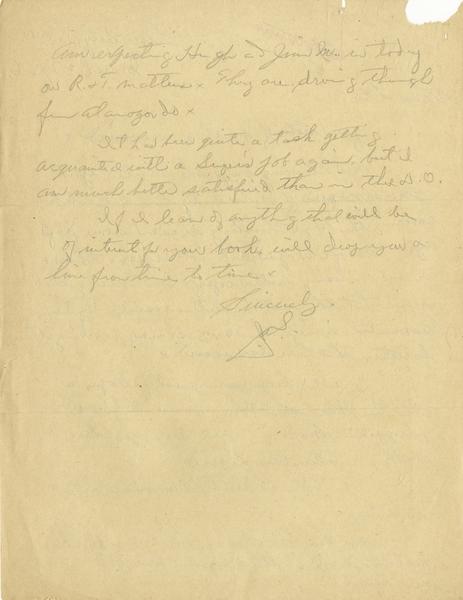 Am expecting Hugh and Jim Mc. in today
on R & T matters x They are driving through
from Alamogordo x
It has been quite a task getting
acquainted with a Super's job again, but I
am much better satisfied than in the S.O.
If I learn of anything that will be
of interest for your book, will drop you a
line from time to time x
Sincerely.